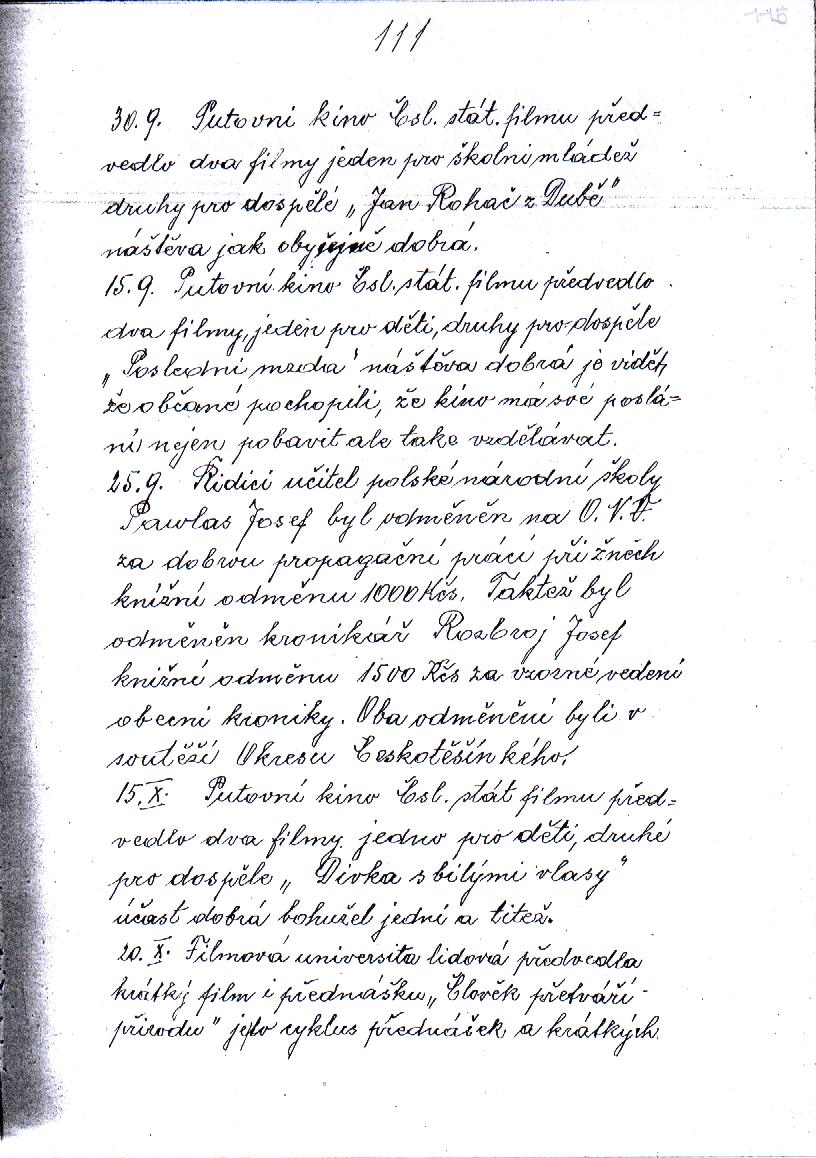 115
111
30.9. Putovni kino Čsl. stát. filmu před=
vedlo dva filmy jeden pro školni mládež
druhy pro dospělé „Jan Rohač z Dubě"
náštěva jak obyčejně dobrá.
15.9. Putovní kino Čsl. stát. filmu předvedlo
dva filmy, jeden pro děti, druhy pro dospěle
„Posledni mzda" náštěva dobrá je vidět,
že občané pochopili, že kino má své poslá=
ní nejen pobavit ale take vzdělávat.
25.9. Řidicí učitel polské národní školy
Pawlas Josef byl odměněn na O.N.V.
za dobrou propagační prácí při žněch
knížní odměnu 1000 Kčs. Taktež byl
odměněn kronikář Rozbroj Josef
knižní odměnu 1500 Kčs za vzorné vedení
obecni kroniky. Oba odměnění byli v
soutěží Okresu Českotěšínkého.
15.X. Putovní kino Čsl. stát filmu před=
vedlo dva filmy jedno pro děti, druhé
pro dospěle „Divka s bilými vlasy"
účast dobrá bohužel jední a titež.
20.X. Filmová universita lidová předvedla
krátký film i přednášku „Člověk přetváří
přirodu" je to cyklus přednášek a krátkých